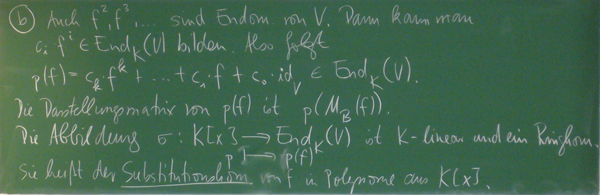 (b) Auch f², f³, ... sind Endom. von V. Dann kann man
cᵢ·fⁱ ∈ End_K(V) bilden. Also folgt
p(f) = c_k·f^k + ... + c₁·f + c₀·id_V ∈ End_K(V).
Die Darstellungsmatrix von p(f) ist p(M_B(f)).
Die Abbildung σ: K[x] → End_K(V) ist K-linear und ein Ringhom.
p ↦ p(f)
Sie heißt der Substitutionshom von f in Polynome aus K[x]